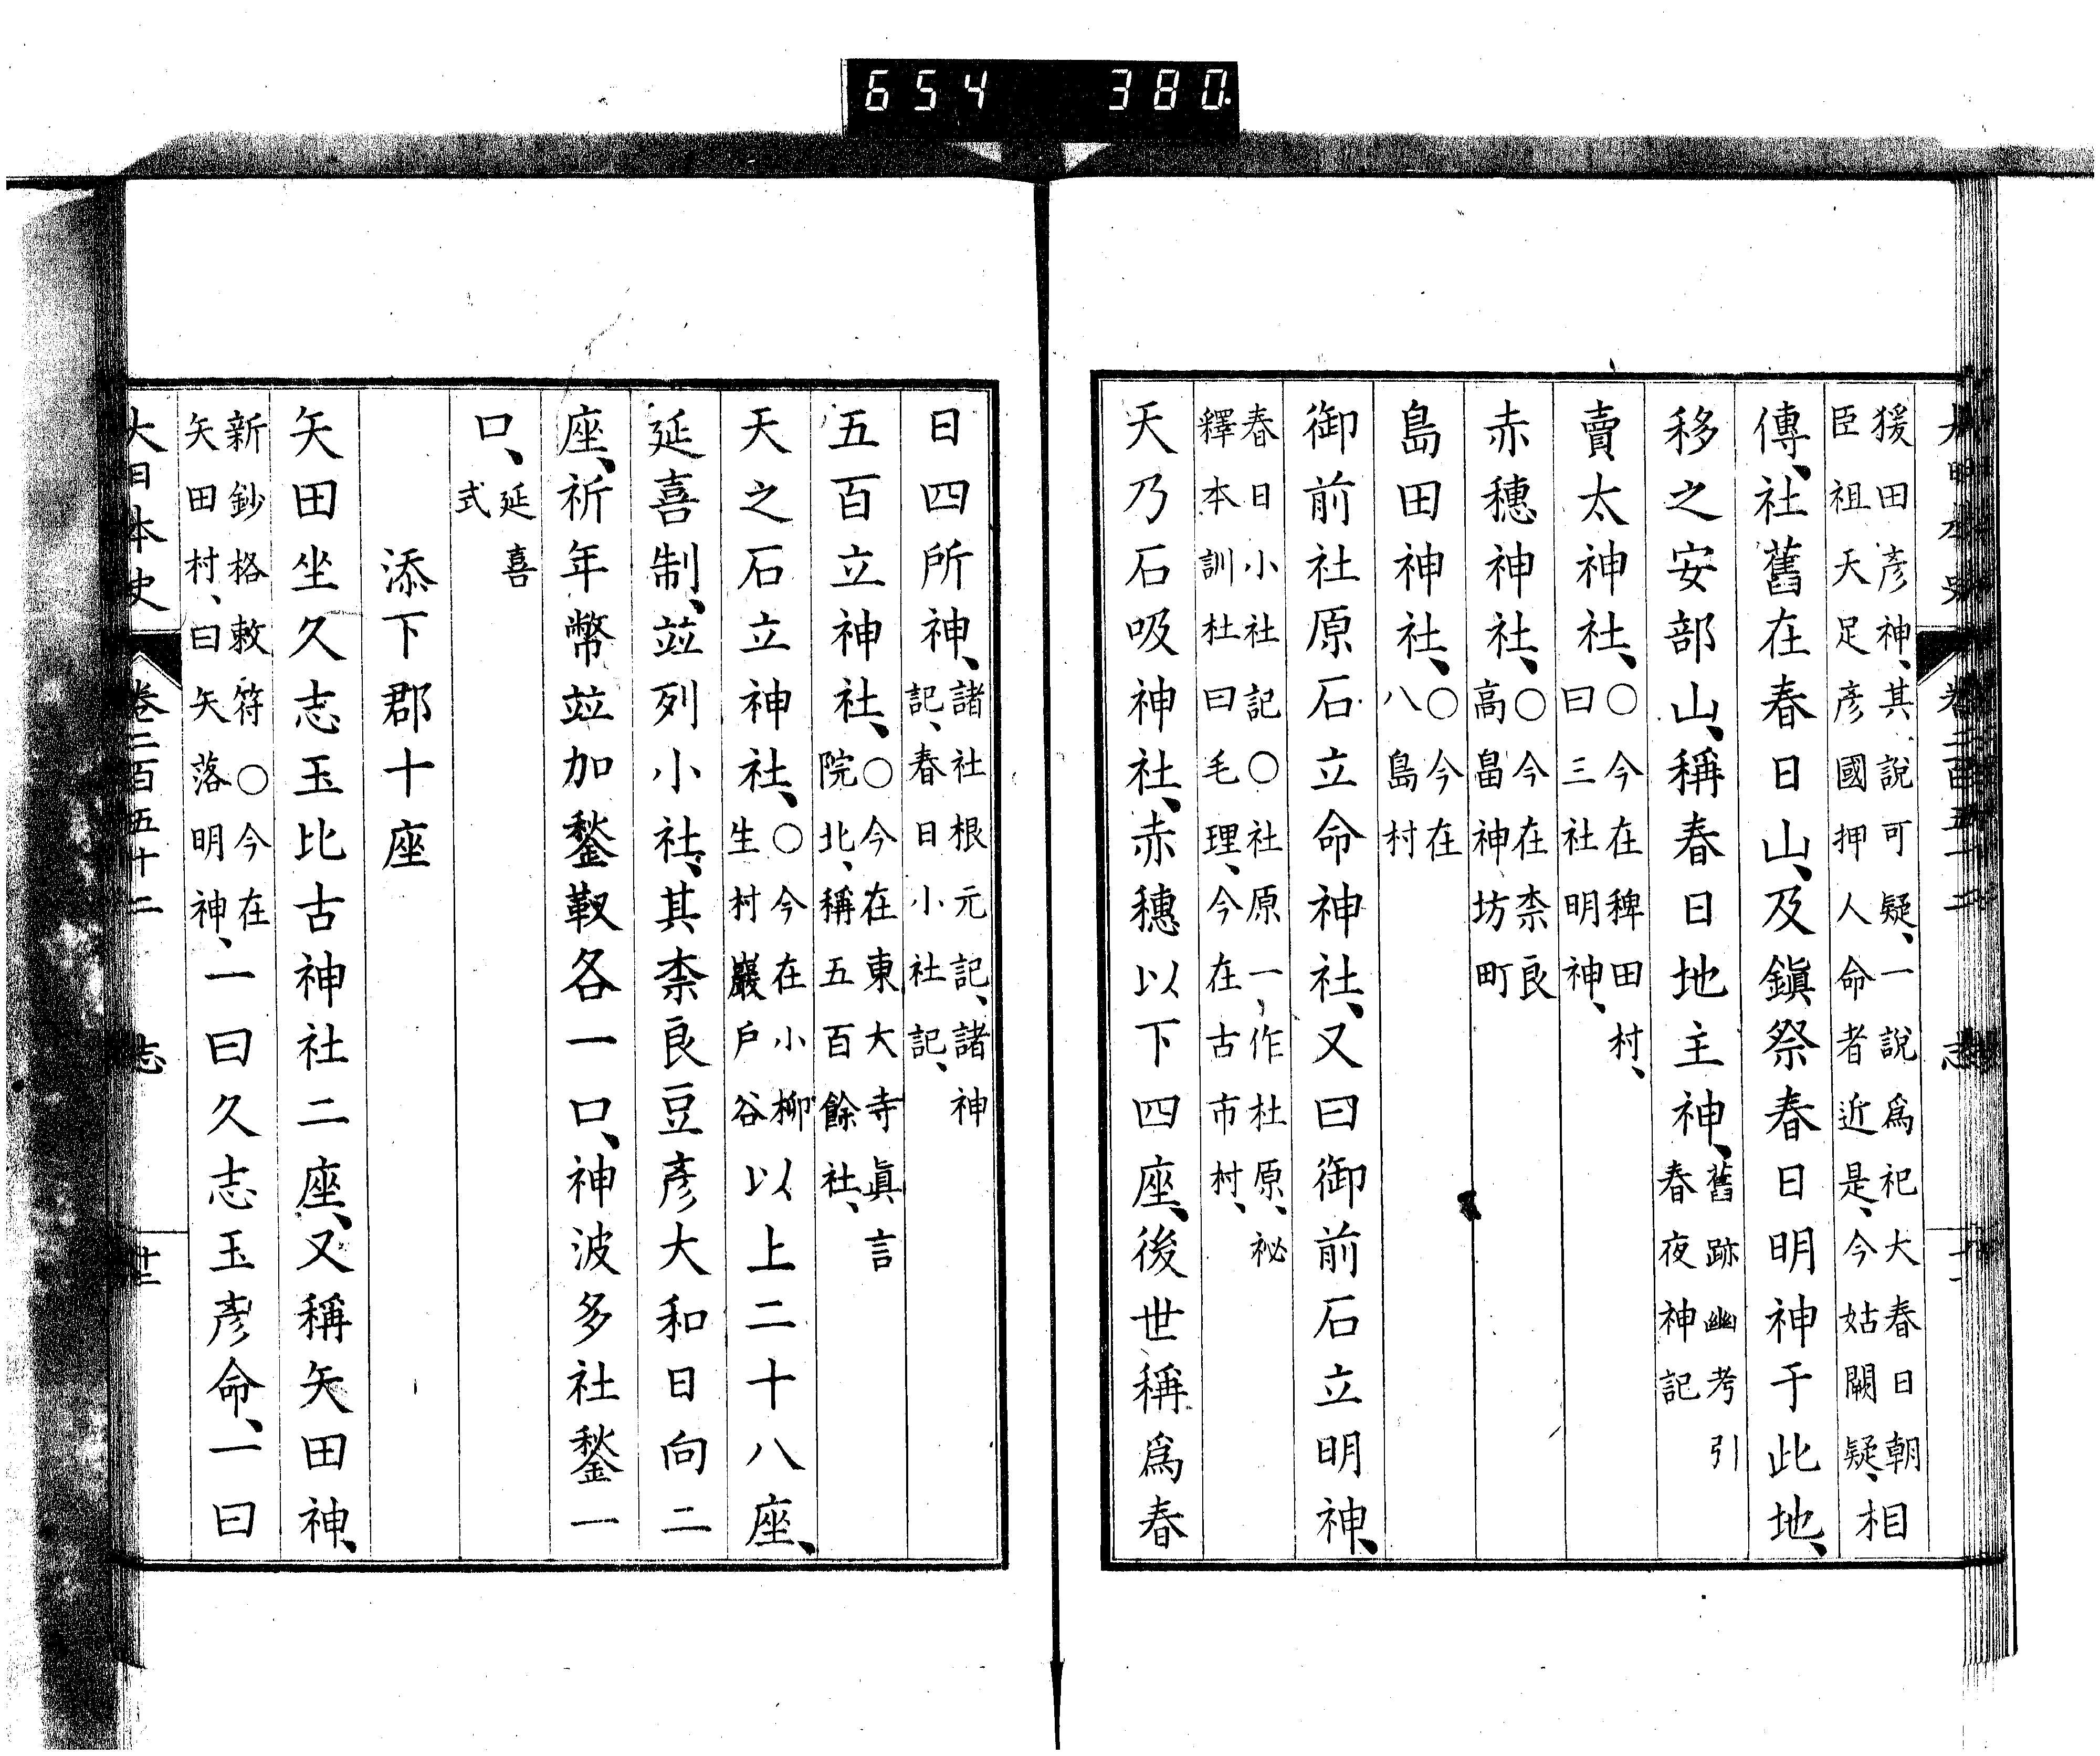 654 380
猨田彥神、其說可疑、一說爲祀大春日朝
臣祖天足彥國押人命者近是、今姑闕疑、相
傳、社舊在春日山、及鎭祭春日明神于此地、
移之安部山、稱春日地主神、舊跡幽考引
春夜神記
賣太神社、○今在稗田村、
曰三社明神、
赤穗神社、○今在柰良
高畠神坊町
島田神社、○今在
八島村
御前社原石立命神社、又曰御前石立明神、
春日小社記○社原一作杜原、祕
釋本訓杜曰毛理、今在古市村、
天乃石吸神社、赤穗以下四座、後世稱爲春
日四所神、諸社根元記、諸神
記、春日小社記、
五百立神社、○今在東大寺眞言
院北、稱五百餘社、
天之石立神社、○今在小柳
生村巖戶谷以上二十八座、
延喜制、竝列小社、其柰良豆彥大和日向二
座、祈年幣竝加鍫靫各一口、神波多社鍫一
口、延喜
式
添下郡十座
矢田坐久志玉比古神社二座、又稱矢田神、
新鈔格敕符○今在
矢田村、曰矢落明神、一曰久志玉彥命、一曰
大日本史 卷二百五十二 志